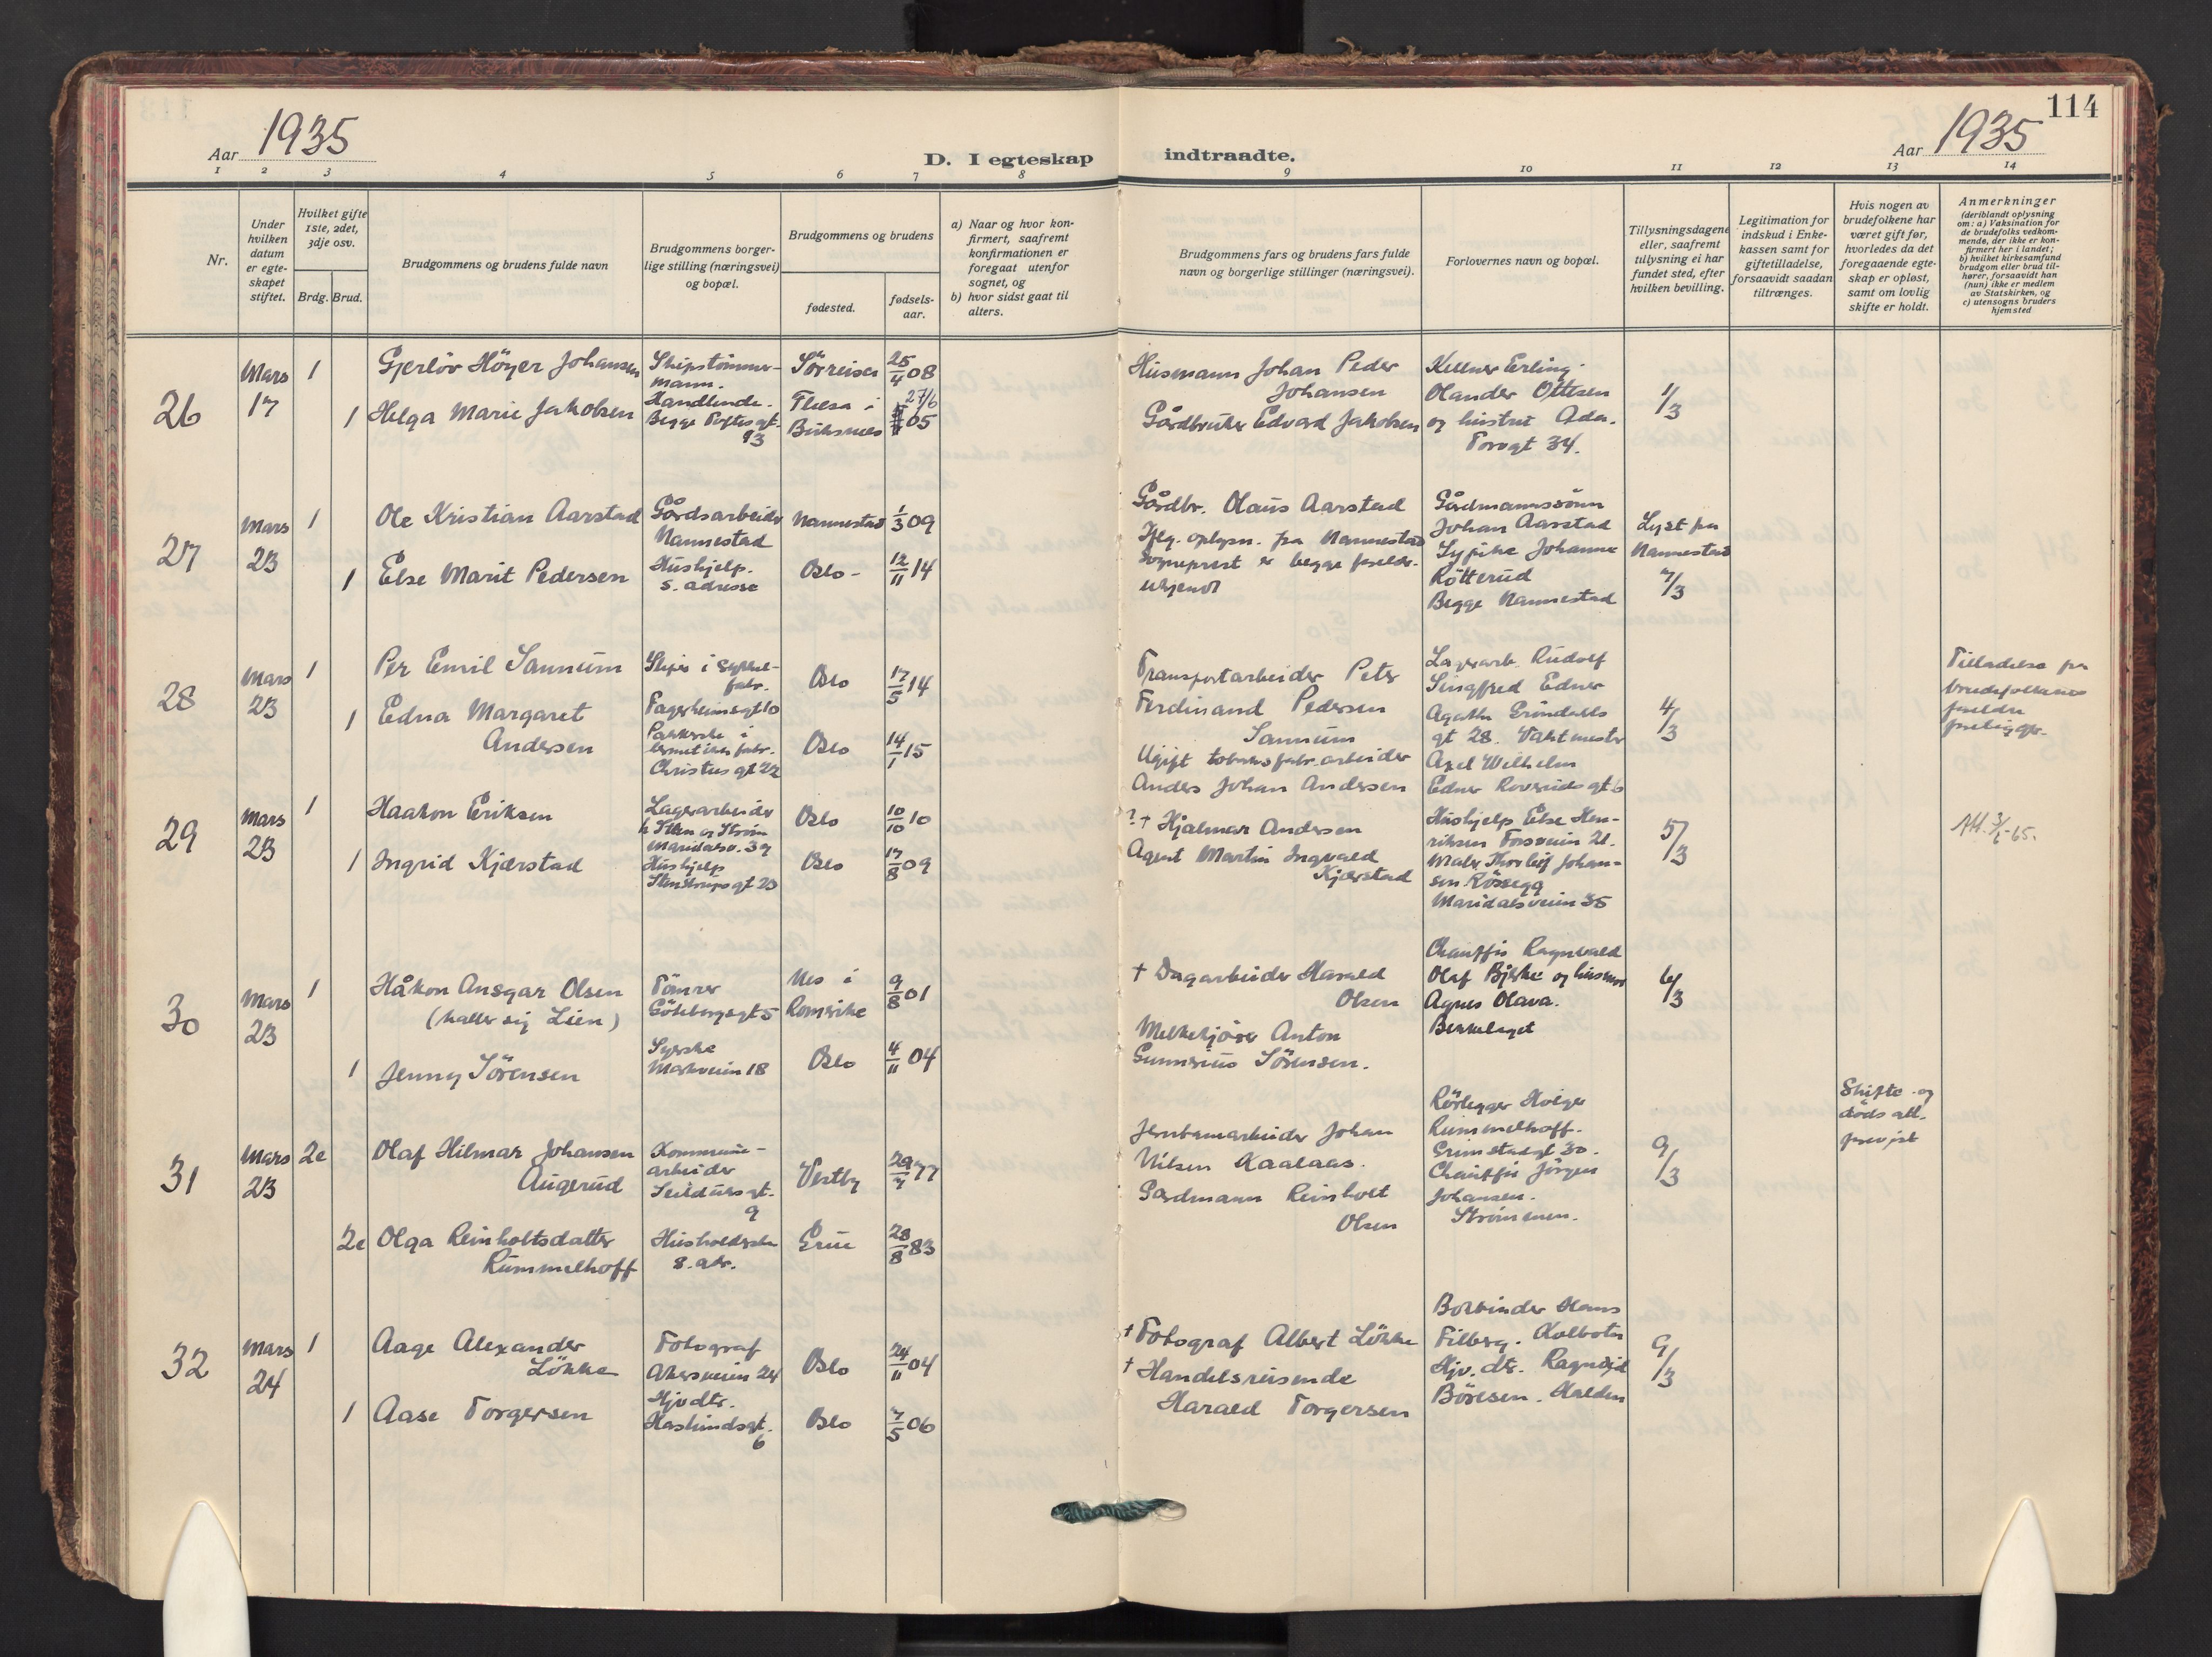 114
Aar 1935
D. I egteskap indtraadte.
Aar 1935
1 2 3 4 5 6 7 8 9 10 11 12 13 14
Nr.
Under
hvilken
datum
er egte-
skapet
stiftet.
Hvilket gifte
1ste, 2det,
3dje osv.
Brdg. Brud.
Brudgommens og brudens fulde navn
Brudgommens borger-
lige stilling (næringsvei)
og bopæl.
Brudgommens og brudens
fødested.
fødsels-
aar.
a) Naar og hvor kon-
firmert, saafremt
konfirmationen er
foregaat utenfor
sognet, og
b) hvor sidst gaat til
alters.
Brudgommens fars og brudens fars fulde
navn og borgerlige stillinger (næringsvei).
Forlovernes navn og bopæl.
Tillysningsdagene
eller, saafremt
tillysning ei har
fundet sted, efter
hvilken bevilling.
Legitimation for
indskud i Enke-
kassen samt for
giftetilladelse,
forsaavidt saadan
tiltrænges.
Hvis nogen av
brudefolkene har
været gift før,
hvorledes da det
foregaaende egte-
skap er opløst,
samt om lovlig
skifte er holdt.
Anmerkninger
(deriblandt oplysning
om: a) Vaksination for
de brudefolks vedkom-
mende, der ikke er kon-
firmert her i landet;
b) hvilket kirkesamfund
brudgom eller brud til-
hører, forsaavidt han
(hun) ikke er medlem
av Statskirken, og
c) utensogns bruders
hjemsted
26
Mars
17
1
Gjerlöv Höyer Johansen
Skipstömmer-
mann.
Sörreisa
25/4 08
1
Helga Marie Jakobsen
Handlende.
Begge Toftesgt.
93
Buksnes
27/6
05
Husmann Johan Peder
Johansen
Gårdbruker Edvard Jakobsen
Kellner Erling
Olander Ottesen
og hustru Ada.
Torvgt 34.
1/3
27
Mars
23
1
Ole Kristian Aarstad
Gårdsarbeider
Nannestad
Nannestad
1/3 09
1
Else Marit Pedersen
Hushjelp.
s. adresse
Oslo -
12/11 14
Gårdbr. Olaus Aarstad
Iflg. oplysn. fra Nannestad
sogneprest er begge foreldr.
ukjendt
Gårdmannssönn
Johan Aarstad
Sypike Johanne
Rötterud
Begge Nannestad
Lyst fra
Nannestad
7/3
28
Mars
23
1
Per Emil Sannum
Sliper i sykkel-
fabr.
Fagerheimsgt 10
Oslo
17/5 14
1
Edna Margaret
Andersen
Pakkerske i
hermetikkfabr.
Christies gt 22
Oslo
14/1 15
Transportarbeider Peter
Ferdinand Pedersen
Sannum
Ugift tobaksfabr. arbeider
Anders Johan Andersen
Lagerarb. Rudolf
Singfred Edner
Agathe Gröndahls
gt 28. Vaktmester
Axel Wilhelm
Edner Roveruds gt 6
4/3
Tilladelse fra
brudefolkenes
foreldre
foreligger.
29
Mars
23
1
Haakon Eriksen
Lagerarbeider
h Steen og Ström
Maridalsv. 39
Oslo
10/10 10
1
Ingrid Kjærstad
Hushjelp
Stenstrups gt 20
Oslo
17/8 09
?+ Hjalmar Andersen
Agent Martin Ingvald
Kjærstad
Hushjelp Else Hen-
riksen Forsveien 21.
Maler Thorleif Johan-
sen Rössegg
Maridalsveien 35
5/3
Att. 3/5-65.
30
Mars
23
1
Håkon Ansgar Olsen
(kaller sig Lien)
Tömrer
Göteborggt 5
Nes i
Romerike
9/8 01
1
Jenny Sörensen
Syerske
Markveien 18
Oslo
4/11 04
+ Dagarbeider Harald
Olsen
Melkekjörer Anton
Gunnerius Sörensen.
Chaufför Ragnvald
Olaf Bjerke og hustru
Agnes Olava.
Bekkelaget
6/3
31
Mars
23
2e
Olaf Hilmar Johansen
Augerud
Kommune-
arbeider
Seilduksgt.
9
Vestby
29/7 77
2e
Olga Reinholtsdatter
Rummelhoff
Husholderske
s. adr.
28/8 83
Jernbanearbeider Johan
Nilsen Kaalaas.
Gårdmann Reinholt
Olsen
Rörlegger Holger
Rummelhoff.
Grimstadgt 30.
Chaufför Jörgen
Johansen.
Strömmen.
9/3
Skifte- og
döds att.
forevist
32
Mars
24
1
Aage Alexander
Lökke
Fotograf
Akersveien 24
Oslo
24/11 04
1
Aase Torgersen
Hjvdtr.
Haslundsgt.
6
Oslo
7/5 06
+ Fotograf Albert Lökke
+ Handelsreisende
Harald Torgersen
Bokbinder Hans
Filberg. Kolbotn
Hjv. dtr. Ragnhild
Böresen. Halden
9/3